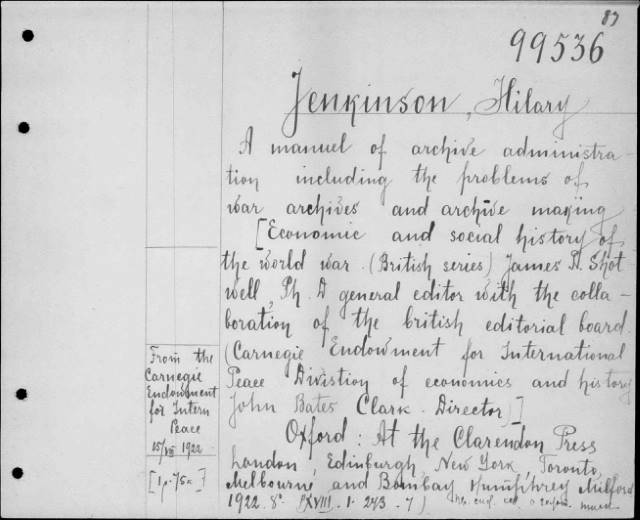 83
99536
Jenkinson, Hilary
A manuel of archive administra-
tion including the problems of
war archives and archive making
[Economic and social history of
the world war. (British series) James T. Shot
well, Ph. D general editor with the colla-
boration of the british editorial board.
(Carnegie Endowment for International
Peace Divistion of economics and history
John Bates Clark. Director)]
Oxford: At the Clarendon Press
London, Edinburgh, New York, Toronto,
Melbourne and Bombay Humphrey Milford
1922. 8°. (XVIII. 1. 243.
From the
Carnegie
Endowment
for Intern
Peace
15/VIII 1922